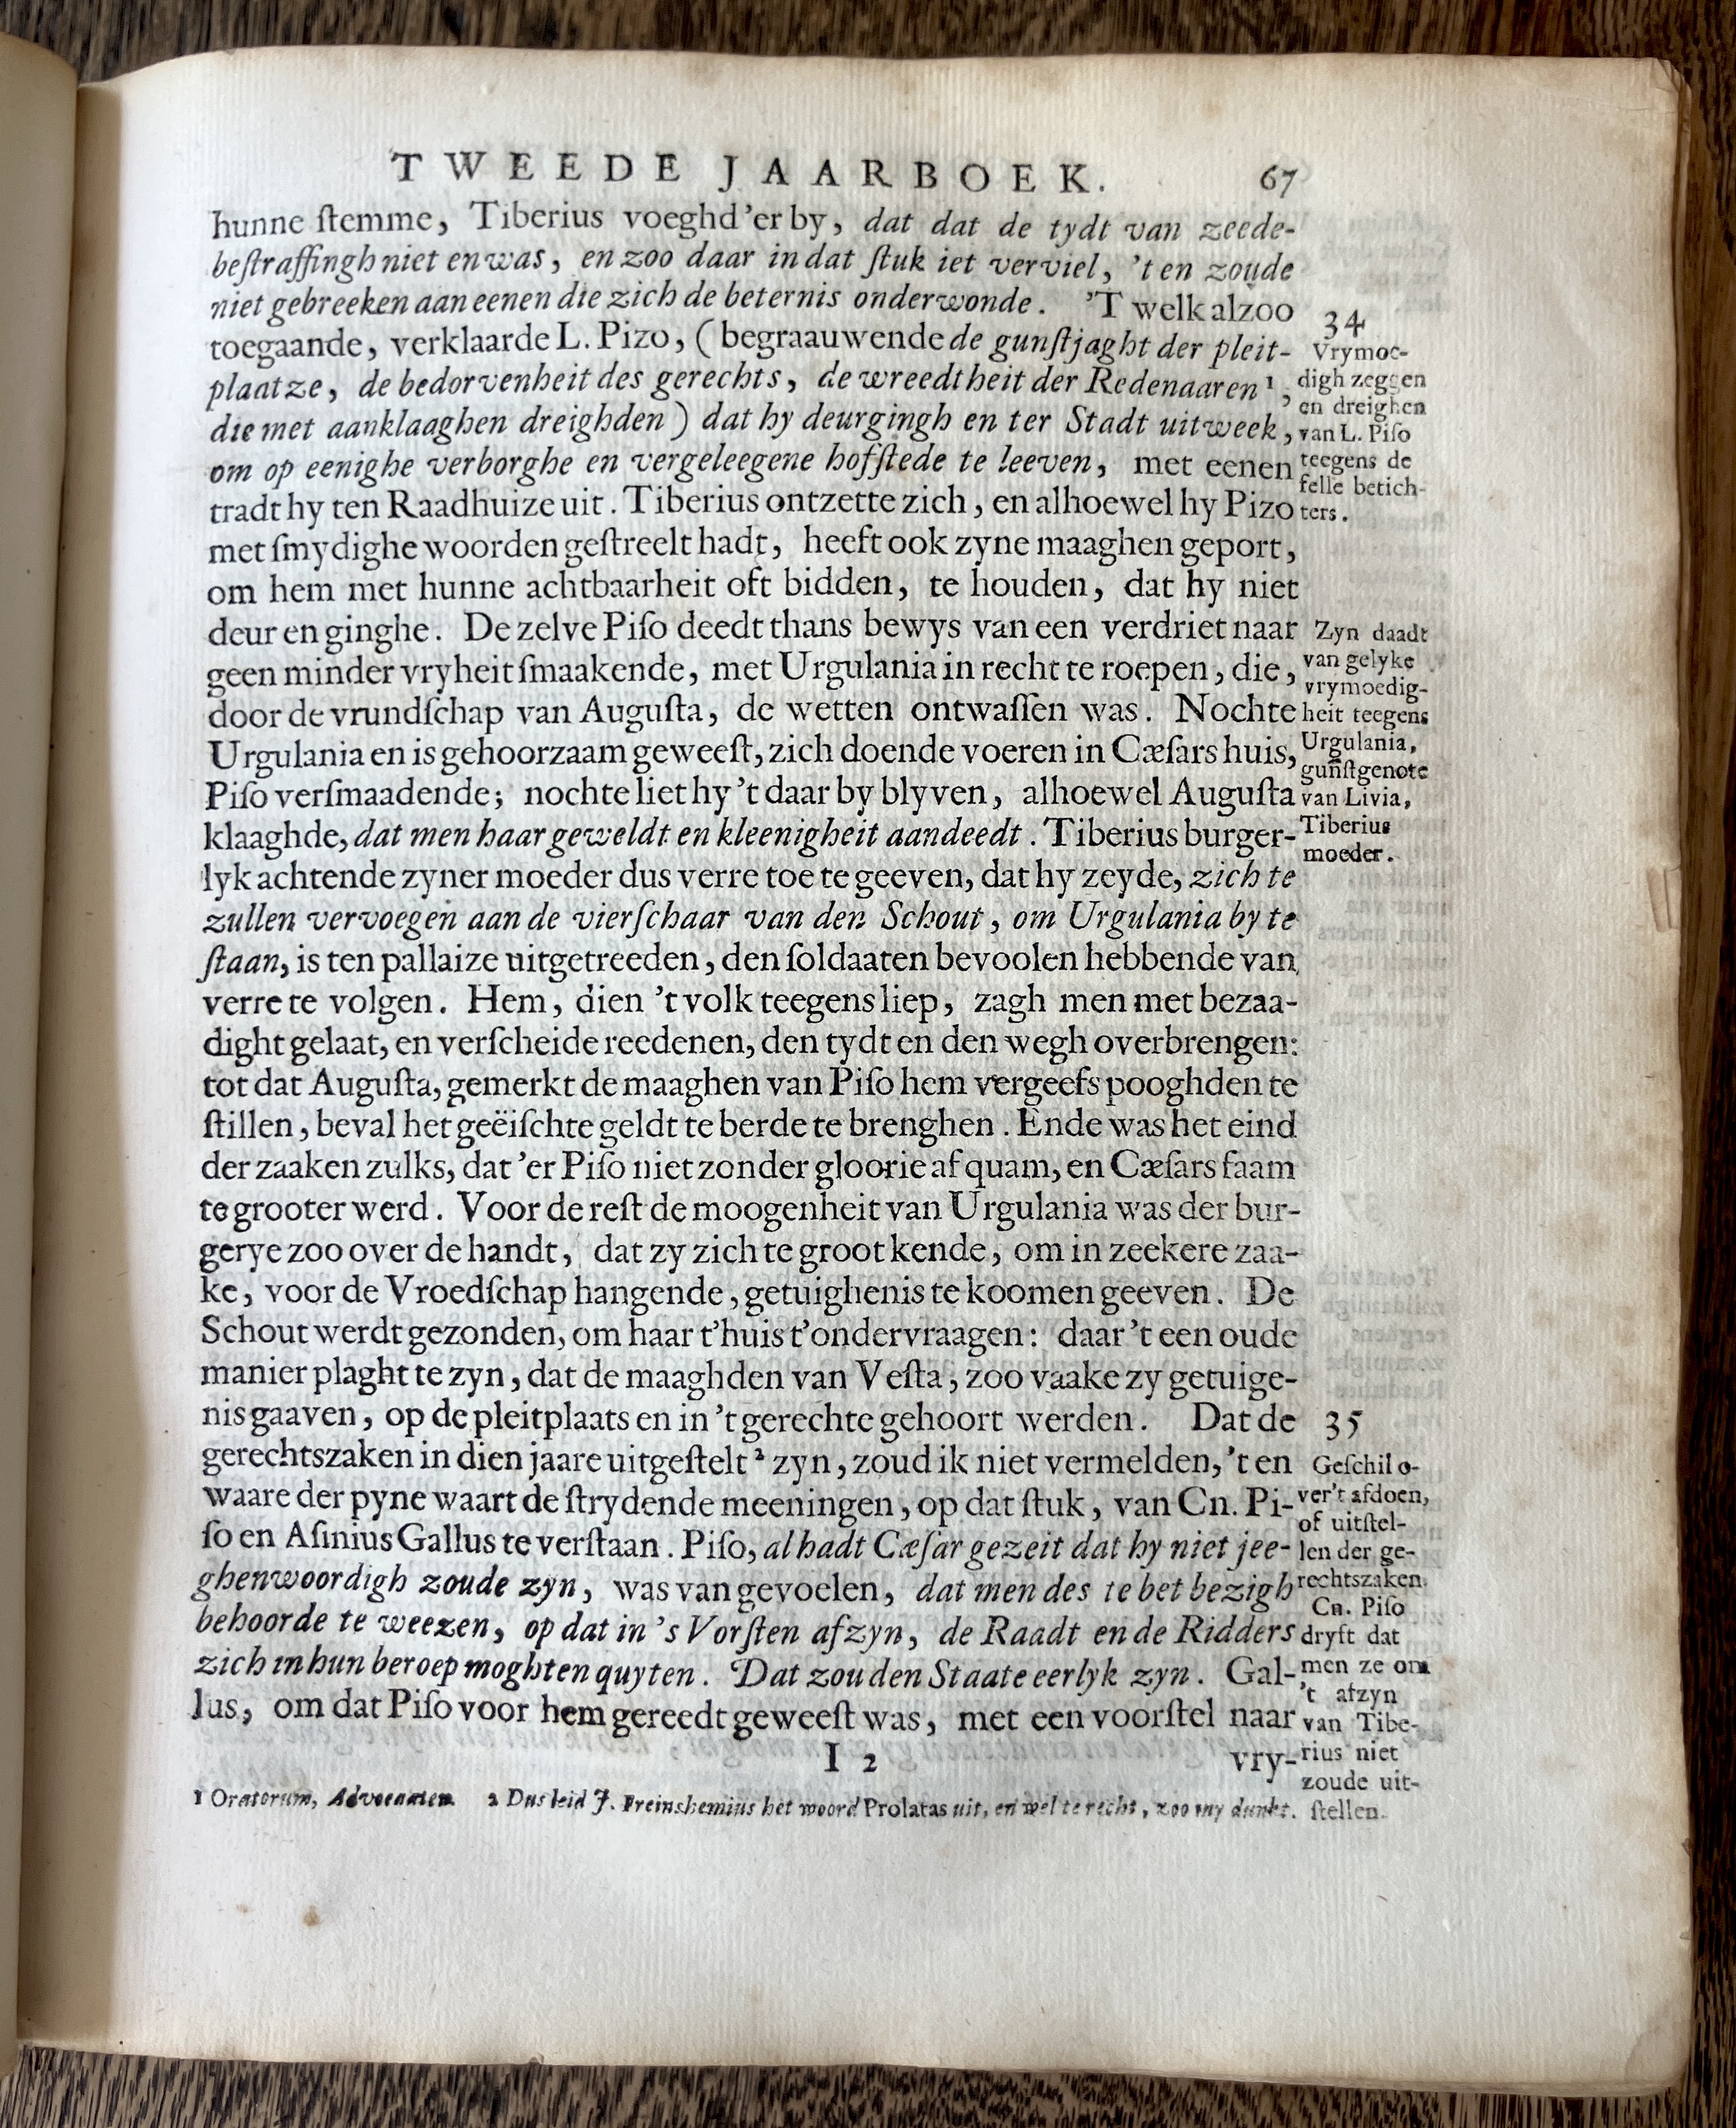 TWEEDE JAARBOEK. 67
hunne ſtemme, Tiberius voeghd'er by, dat dat de tydt van zeede-
beſtraffingh niet en was, en zoo daar in dat ſtuk iet verviel, 't en zoude
niet gebreeken aan eenen die zich de beternis onderwonde. 'T welk alzoo
toegaande, verklaarde L. Pizo, (begraauwende de gunſtjaght der pleit-
plaatze, de bedorvenheit des gerechts, de wreedtheit der Redenaaren ¹,
die met aanklaaghen dreighden) dat hy deurgingh en ter Stadt uitweek,
om op eenighe verborghe en vergeleegene hofſtede te leeven, met eenen
tradt hy ten Raadhuize uit. Tiberius ontzette zich, en alhoewel hy Pizo
met ſmydighe woorden geſtreelt hadt, heeft ook zyne maaghen geport,
om hem met hunne achtbaarheit oft bidden, te houden, dat hy niet
deur en ginghe. De zelve Piſo deedt thans bewys van een verdriet naar
geen minder vryheit ſmaakende, met Urgulania in recht te roepen, die,
door de vrundſchap van Auguſta, de wetten ontwaſſen was. Nochte
Urgulania en is gehoorzaam geweeſt, zich doende voeren in Cæſars huis,
Piſo verſmaadende; nochte liet hy 't daar by blyven, alhoewel Auguſta
klaaghde, dat men haar geweldt en kleenigheit aandeedt. Tiberius burger-
lyk achtende zyner moeder dus verre toe te geeven, dat hy zeyde, zich te
zullen vervoegen aan de vierſchaar van den Schout, om Urgulania by te
ſtaan, is ten pallaize uitgetreeden, den ſoldaaten bevoolen hebbende van
verre te volgen. Hem, dien 't volk teegens liep, zagh men met bezaa-
dight gelaat, en verſcheide reedenen, den tydt en den wegh overbrengen:
tot dat Auguſta, gemerkt de maaghen van Piſo hem vergeefs pooghden te
ſtillen, beval het geëiſchte geldt te berde te brenghen. Ende was het eind
der zaaken zulks, dat 'er Piſo niet zonder gloorie af quam, en Cæſars faam
te grooter werd. Voor de reſt de moogenheit van Urgulania was der bur-
gerye zoo over de handt, dat zy zich te groot kende, om in zeekere zaa-
ke, voor de Vroedſchap hangende, getuighenis te koomen geeven. De
Schout werdt gezonden, om haar t'huis t'ondervraagen: daar 't een oude
manier plaght te zyn, dat de maaghden van Veſta, zoo vaake zy getuige-
nis gaaven, op de pleitplaats en in 't gerechte gehoort werden. Dat de
gerechtszaken in dien jaare uitgeſtelt ² zyn, zoud ik niet vermelden, 't en
waare der pyne waart de ſtrydende meeningen, op dat ſtuk, van Cn. Pi-
ſo en Aſinius Gallus te verſtaan. Piſo, al hadt Cæſar gezeit dat hy niet jee-
ghenwoordigh zoude zyn, was van gevoelen, dat men des te bet bezigh
behoorde te weezen, op dat in 's Vorſten afzyn, de Raadt en de Ridders
zich in hun beroep moghten quyten. Dat zou den Staate eerlyk zyn. Gal-
lus, om dat Piſo voor hem gereedt geweeſt was, met een voorſtel naar
I 2 vry-
1 Oratorum, Advocaaten. 2 Dus leid J. Freinshemius het woord Prolatas uit, en wel te recht, zoo my dunkt.
34
Vrymoe-
digh zeggen
en dreighen
van L. Piſo
teegens de
felle betich-
ters.
Zyn daadt
van gelyke
vrymoedig-
heit teegens
Urgulania,
gunſtgenote
van Livia,
Tiberius
moeder.
35
Geſchil o-
ver't afdoen,
of uitſtel-
len der ge-
rechtszaken.
Cn. Piſo
dryft dat
men ze om
't afzyn
van Tibe-
rius niet
zoude uit-
ſtellen.